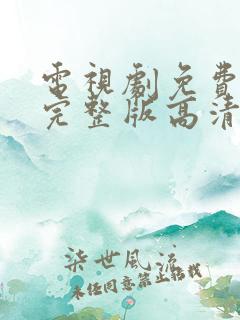 電視劇免費
完整版高清
柒世風流
未经同意禁止转载